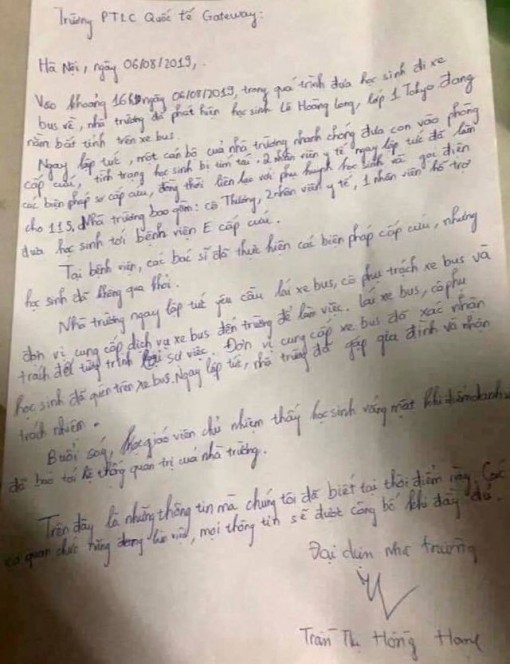 Trường PTLC Quốc tế Gateway:
Hà Nội, ngày 06/08/2019,.
Vào khoảng 16h ngày 06/08/2019, trong quá trình đưa học sinh đi xe
bus về, nhà trường đã phát hiện học sinh Lê Hoàng Long, lớp 1 Tokyo đang
nằm bất tỉnh trên xe bus.
Ngay lập tức, một cán bộ của nhà trường nhanh chóng đưa con vào phòng
cấp cứu, tình trạng học sinh bị tím tái. 2 nhân viên y tế ngay lập tức đã làm
các biện pháp sơ cấp cứu, đồng thời liên lạc với phụ huynh học sinh và gọi điện
cho 115. Nhà trường bao gồm: cô Thương, 2 nhân viên y tế, 1 nhân viên hỗ trợ
đưa học sinh tới bệnh viện E cấp cứu.
Tại bệnh viện, các bác sĩ đã thực hiện các biện pháp cấp cứu, nhưng
học sinh đã không qua khỏi.
Nhà trường ngay lập tức yêu cầu lái xe bus, cô phụ trách xe bus và
đơn vị cung cấp dịch vụ xe bus đến trường để làm việc. Lái xe bus, cô phụ
trách để tường trình sự việc. Đơn vị cung cấp xe bus đã xác nhận
học sinh đã quên trên xe bus. Ngay lập tức, nhà trường đã gặp gia đình và nhân
trách nhiệm.
Buổi sáng, giáo viên chủ nhiệm thấy học sinh vắng mặt khi điểm danh và
đã báo tới hệ thống quản trị của nhà trường.
Trên đây là những thông tin mà chúng tôi đã biết tại thời điểm này. Các
cơ quan chức năng đang làm việc, mọi thông tin sẽ được công bố khi đầy đủ.
Đại diện nhà trường
Trần Thị Hồng Hạnh